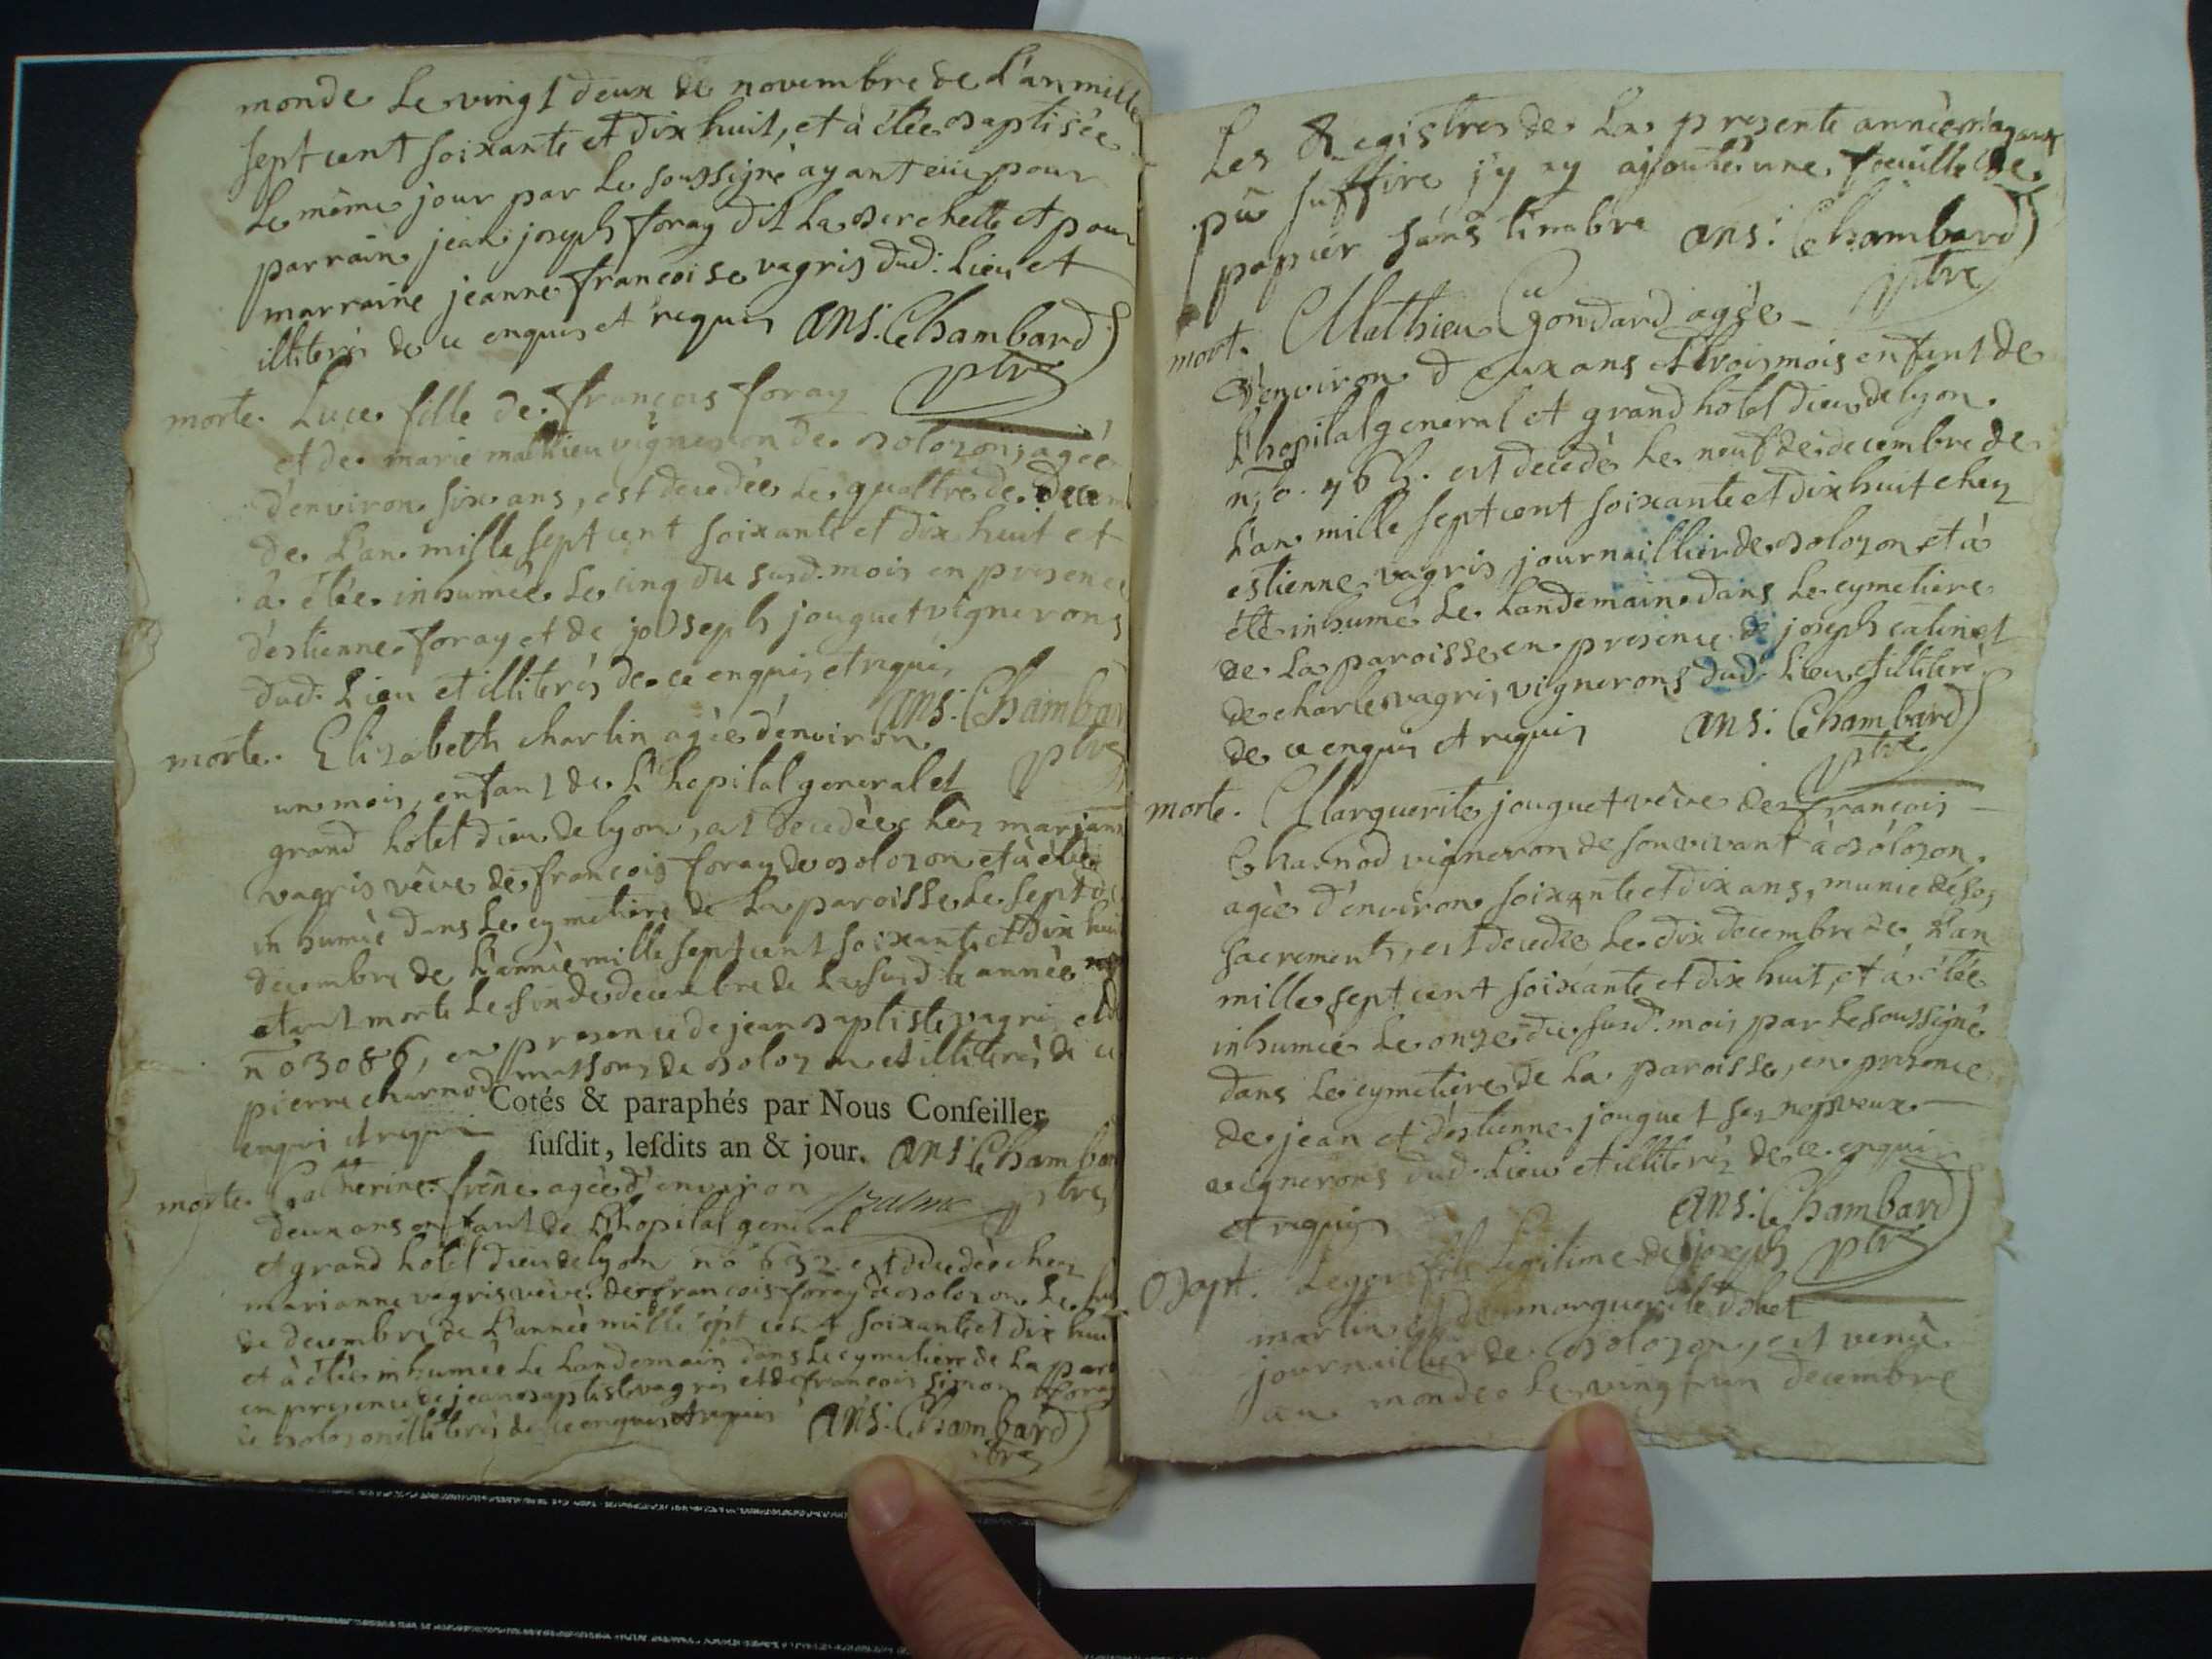 monde le vingt deux de novembre de l'an mille
sept cent soixante et dix huit, et à étée baptisée
le même jour par le soussigné ayant eüe pour
parrain jean joseph foray dit la berchette et pour
marraine jeanne francoise vagris dud: lieu et
illiterés de ce enquis et requis ans: Chambard
ptre
morte. Luce fille de francois foray
et de marie mathieu vigneron de bolozon, agée
d'environ six ans, est decedée le quattre de decem
de l'an mille sept cent soixante et dix huit et
à étée inhumée le cinq du susd. mois en presence
d'estienne foray et de joseph jouguet vignerons
dud. lieu et illiterés de ce enquis et requis
ans: Chambar
ptre
morte. Elizabeth charlin agée d'environ
un mois, enfant de l'hopital general et
grand hotel dieu de lyon, est decedée chés marjann
vagris vêve de françois foray de bolozon et à étée
inhumée dans le cymetiere de la paroisse le sept de
decembre de l'année mille sept cent soixante et dix hui
etant morte le six de decembre de la susd.te année
no 3086, en presence de jean baptiste vagris et d
pierre charnod massons de bolozon et illiterés de ce
enqui et requi
Cotés & paraphés par Nous Conseiller
susdit, lesdits an & jour. ans: Chambar
ptre
morte. Catherine frêne agée d'environ
deux ans enfant de l'hopital general
et grand hotel dieu de lyon no 632 est decedée chez
marianne vagris vêve de francois foray de bolozon le hui
de decembre de l'année mille sept cent soixante et dix huit
et à étée inhumée le landemain dans le cymetiere de la paro
en presence de jean baptiste vagris et de francois simon foray
de bolozon illiterés de ce enquis et requis ans: Chambard
ptre
Les Registres de la presente année n'ayant
pû suffire j'y ay ajouté une feuille de
papier sans timbre ans: Chambard
ptre
mort. Mathieu Gondard agée
d'environ deux ans et trois mois enfant de
l'hopital general et grand hotel dieu de lyon.
est decedé le neuf de decembre de
l'an mille sept cent soixante et dix huit chez
estienne vagris journaillier de bolozon et à
été inhumé le landemain dans le cymetiere
de la paroisse en presence de joseph catinet
de charle vagris vignerons dud. lieu et illiterés
de ce enquis et requis ans: Chambard
ptre
morte. Marguerite jouguet vêve de francois
Charnod vigneron de son vivant à bolozon
agée d'environ soixante et dix ans, munie de ses
sacrements, est decedée le dix decembre de l'an
mille sept cent soixante et dix huit, et à étée
inhumée le onze du susd. mois par le soussigné
dans le cymetiere de la paroisse, en presence
de jean et d'estienne jouguet ses nepveux
vignerons dud. lieu et illiterés de ce enquis
et requis ans: Chambard
ptre
Bapt. Leger fils legitime de joseph
martin et de marguerite
journaillier de bolozon, est venu
au monde le vingt un decembre